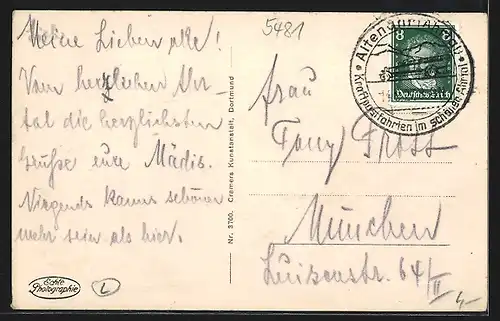 Meine Lieben alle!
Vom herzlichen Ahr-
tal die herzlichsten
Grüße eure Mädis.
Nirgends kanns schöner
mehr sein als hier.
Echte
Photographie
L
Nr. 3700. Cramers Kunstanstalt, Dortmund
5481
Frau
Tony
München
Luisenstr. 64/II
4,-
8
Deutsches Reich
Altenahr
Kraftpostfahrten im schönen Ahrtal